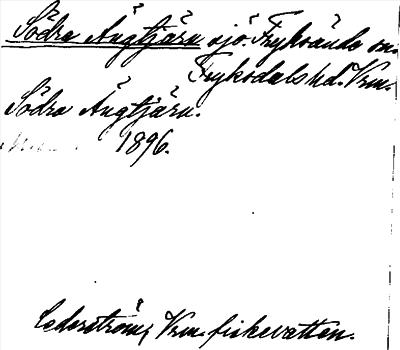 Södra Ängtjärn sjö. Fryksände sn.
Fryksdals hd. Vrm.
Södra Ängtjärn.
1896.
Cederström, Vrm. fiskevatten.